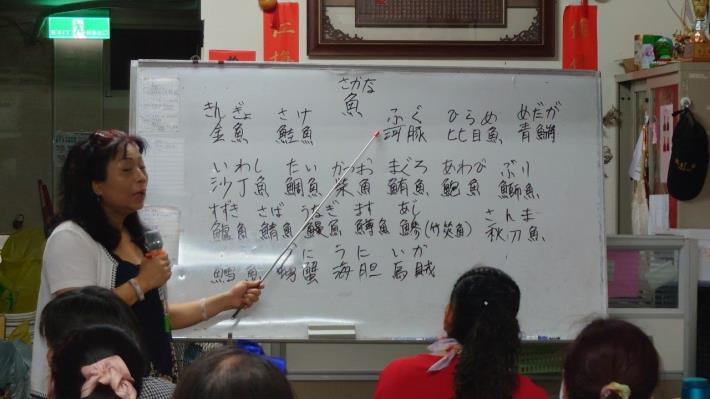 さかな
魚
きんぎょ さけ ふぐ ひらめ めだか
金魚 鮭魚 河豚 比目魚 青鱂
いわし たい かつお まぐろ あわび ぶり
沙丁魚 鯛魚 柴魚 鮪魚 鮑魚 鰤魚
すずき さば うなぎ ます あじ さんま
鱸魚 鯖魚 鰻魚 鱒魚 鰺(竹筴魚) 秋刀魚
に うに いか
鱈魚 蟹 海胆 烏賊